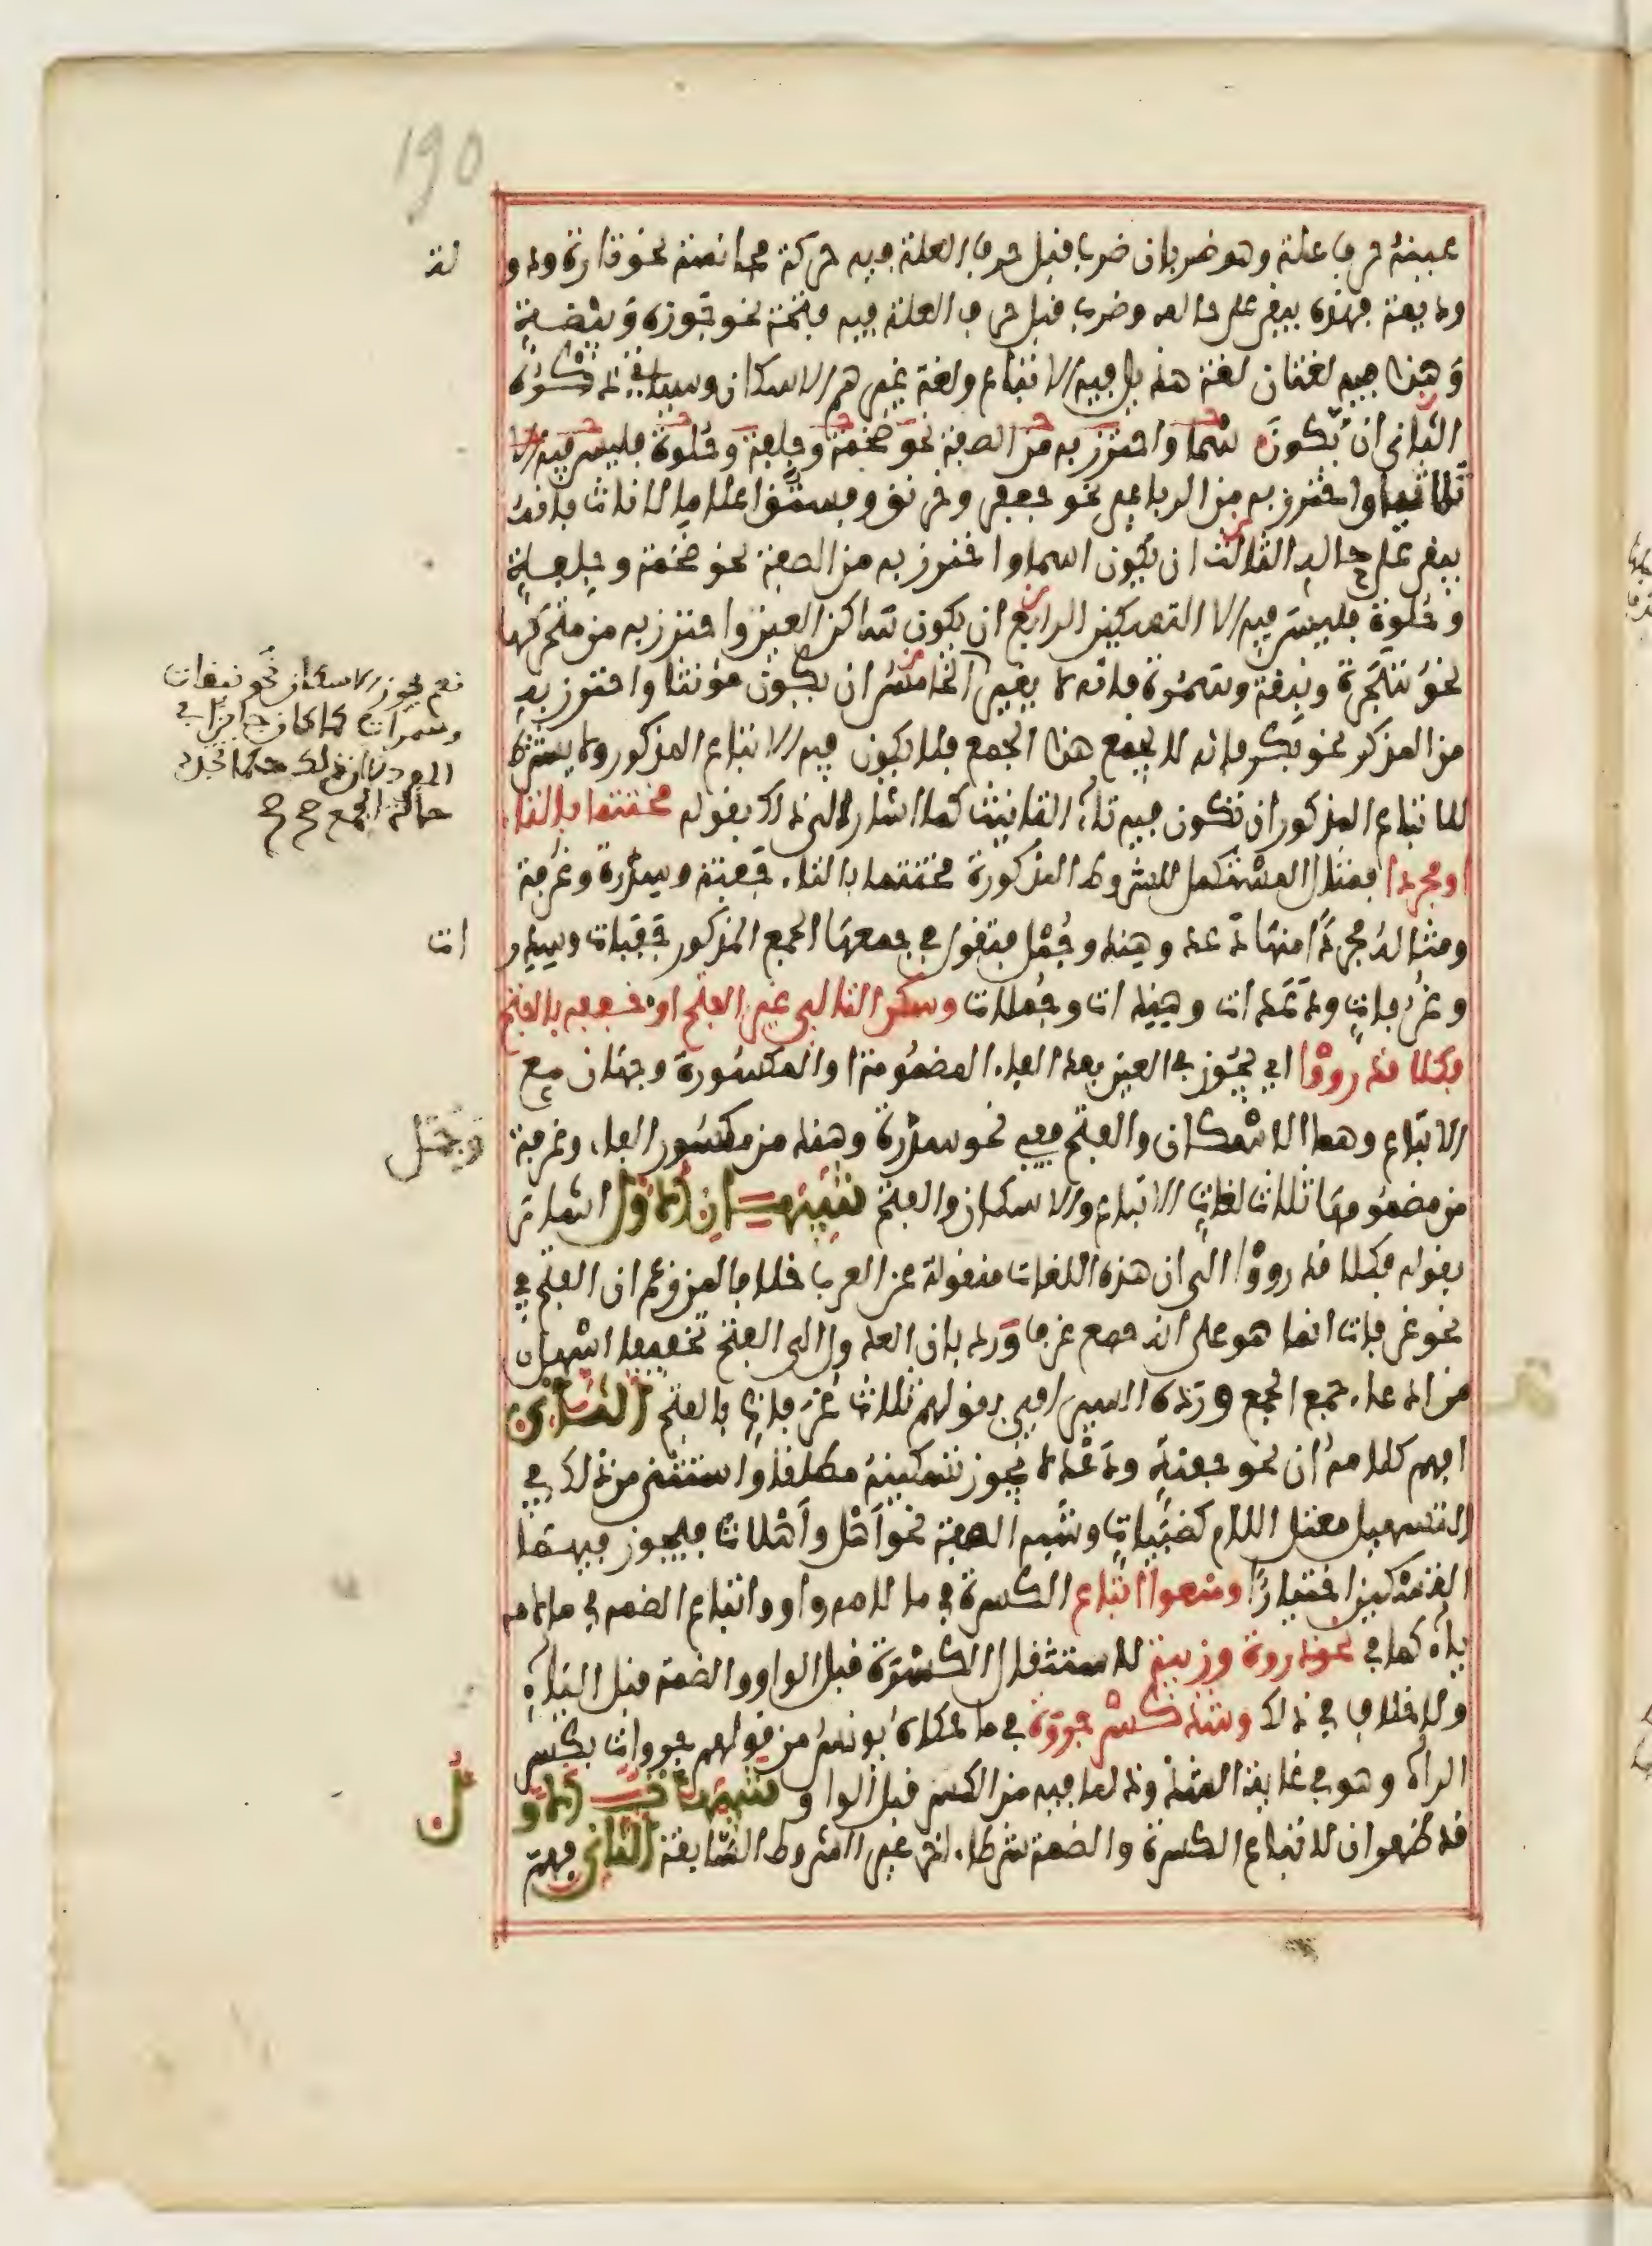 190
عينه حرف علة وهو ضربان ضرب قبل حرف العلة فيه حركة مجانسة نحو تارة ودو لة
وديمة فهذا يبقى على حاله وضرب قبل حرف العلة فيه فتحة نحو جوزة وبيضة
وهذا فيه لغتان لغة هذيل فيه الاتباع ولغة غيرهم الاسكان وسيأتي ذكره
الثاني ان يكون اسما واحترز به من الصفة نحو ضخمة وجلفة وحلوة فليس فيه الا
ثلاثيا واحترز به من الرباعي نحو جعفر وخرنق وفستق اعلاما لاناث فانه
يبقى على حاله الثالث ان يكون اسما واحترز به من الصفة نحو ضخمة وجلفة
وحلوة فليس فيه الا التسكين الرابع ان يكون ساكن العين واحترز به من متحركها
نحو شجرة ونبقة وسمرة فانه لا يغير الخامس ان يكون مؤنثا واحترز به
من المذكر نحو بكر فانه لا يجمع هذا الجمع فلا يكون فيه الاتباع المذكور ولا يشترط
للاتباع المذكور ان تكون فيه تاء التانيث كما اشار الى ذلك بقوله مختتما بالتاء
او مجردا فمثال المستكمل للشروط المذكورة مختتما بالتاء جفنة وسدرة وغرفة
ومثاله مجردا منها دعد وهند وجمل فتقول في جمعها الجمع المذكور جفنات وسدر ات
وغرفات ودعدات وهندات وجملات وسكن التالي غير الفتح او خففه بالفتح
فكلا قد رووا اي يجوز في العين بعد الفاء المضمومة او المكسورة وجهان مع
الاتباع وهما الاسكان والفتح ففي نحو سدرة وهند من مكسور الفاء وغرفة وجمل
من مضمومها ثلاث لغات الاتباع والاسكان والفتح تنبيهان الاول اشار
بقوله فكلا قد رووا الى ان هذه اللغات منقولة عن العرب خلافا لمن زعم ان الفتح في
نحو غرفات انما هو على انه جمع غرف ورد بان العدول الى الفتح تخفيفا اسهل
من ادعاء جمع الجمع ورده السيرافي بقولهم ثلاث غرفات بالفتح الثاني
افهم كلامه ان نحو جفنة ودعد لا يجوز تسكينه مطلقا واستثنى من ذلك في
التسهيل معتل اللام كظبيات وشبه الصفة نحو اهل واهلات فيجوز فيهما
التسكين اختيارا ومنعوا اتباع الكسرة في ما لامه واو واتباع الضم في ما لامه
ياء كما في نحو ذروة وزبية لاستثقال الكسرة قبل الواو والضمة قبل الياء
ولا خلاف في ذلك وشذ كسر جروة في ما حكاه يونس من قولهم جروات بكسر
الراء وهو في غاية الشذوذ لما فيه من الكسر قبل الواو تنبيهات الاو ل
قد ظهر ان لاتباع الكسرة والضمة شرطا اخر غير الشروط السابقة الثاني فهم
نعم يجوز الاسكان نحو نبقات
وسمرات كما كان جائزا في
المفرد لان ذلك
حالة الجمع صح صح